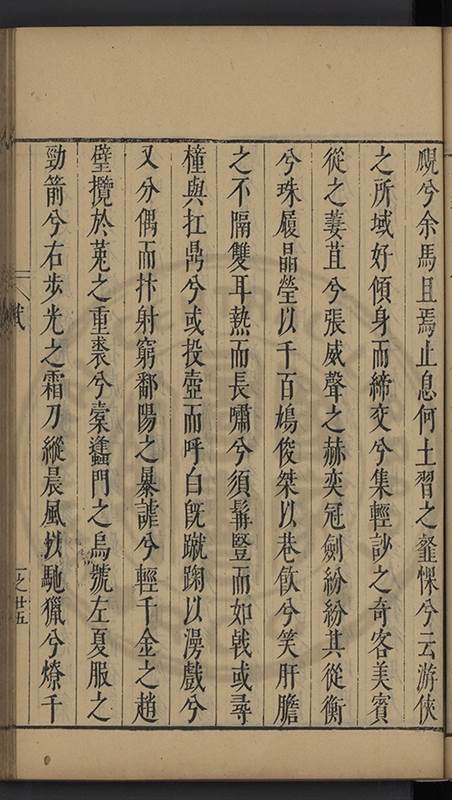 覞兮余馬且焉止息何土習之㔶憟兮云游俠
之所域好傾身而締交兮集輕訬之奇客美賓
從之萋苴兮張威聲之赫奕冠劍紛紛其從衡
兮珠履晶瑩以千百鳩俊桀以巷飲兮笑肝膽
之不隔雙耳熱而長嘯兮須髯豎而如戟或尋
橦與扛鼎兮或投壺而呼白既蹴踘以漫戲兮
又分偶而抃射窮鄱陽之暴謔兮輕千金之趙
璧攬於菟之重裘兮櫜蠭門之烏號左夏服之
勁箭兮右步光之霜刀縱晨風以馳獵兮燎千
賦
一之廿五